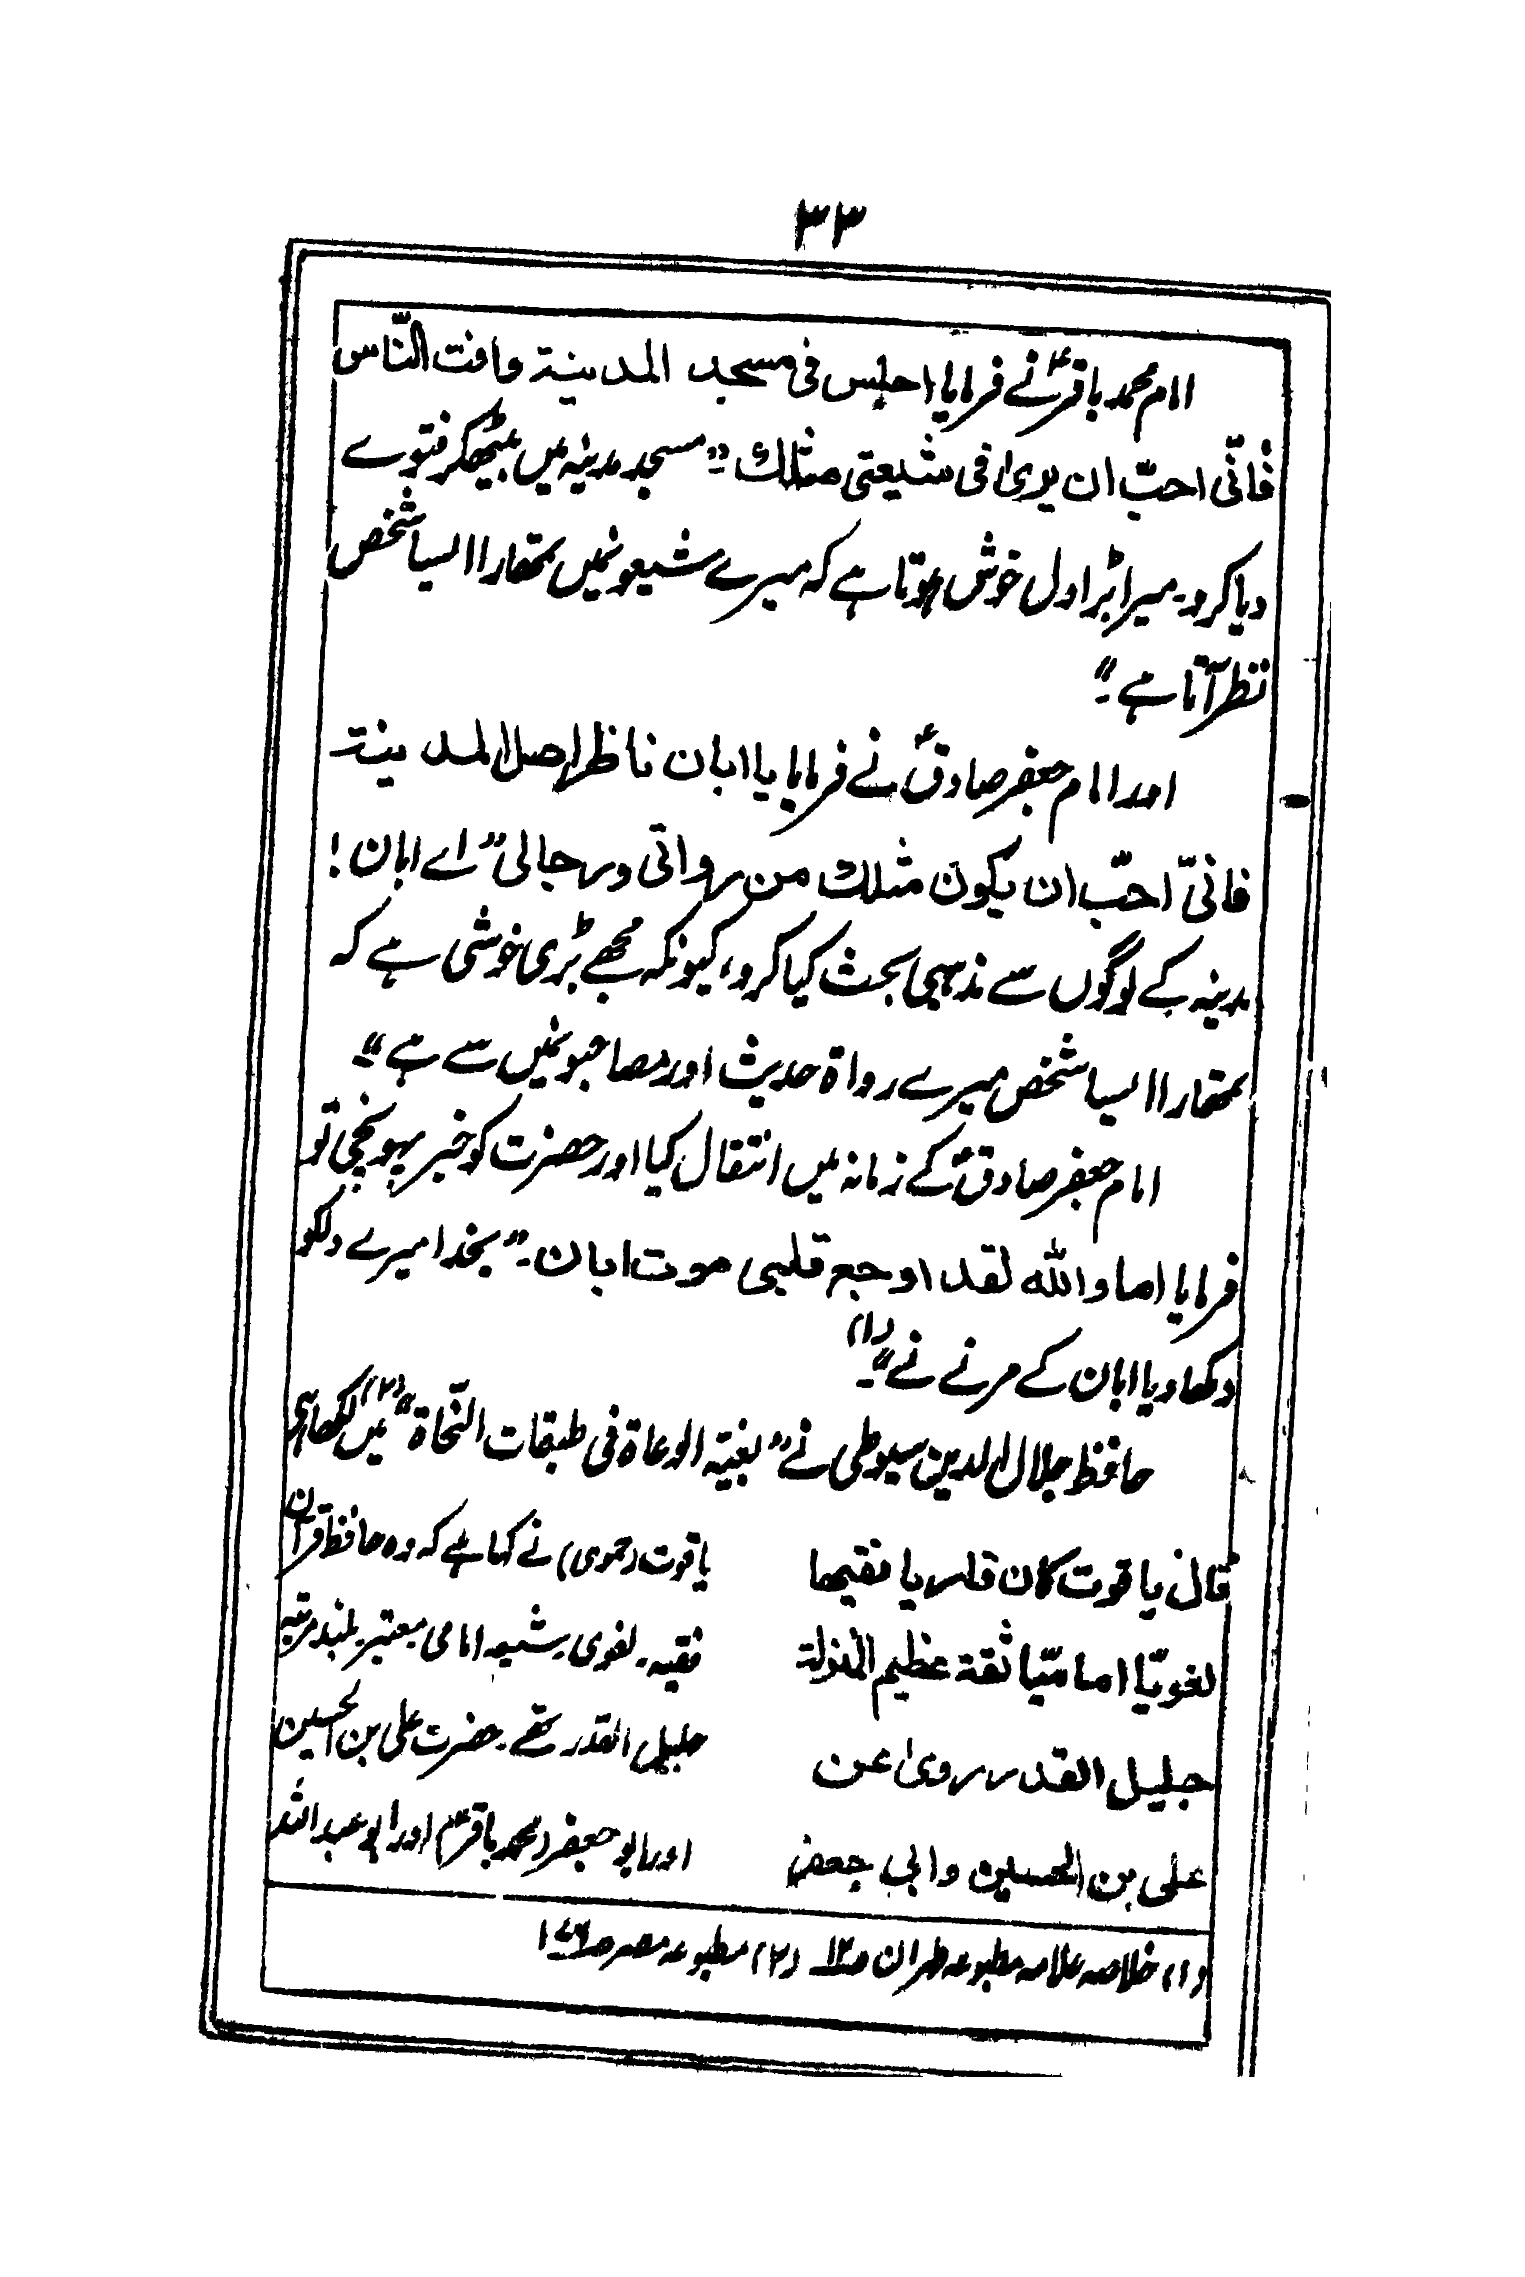 ۳۳
امام محمد باقرؑ نے فرمایا اجلس فی مسجد المدینۃ وافت النّاس
فانّی احبّ ان یریٰ فی شیعتی مثلک "مسجد مدینہ میں بیٹھکر فتوے
دیا کرو۔ میرا بڑا دل خوش ہوتا ہے کہ میرے شیعونمیں تمھارا ایسا شخص
نظر آتا ہے۔"
اور امام جعفر صادقؑ نے فرمایا یا ابان ناظر اھل المدینۃ
فانیّ احبّ ان یکون مثلک من رواتی ورجالی" اے ابان!
مدینہ کے لوگوں سے مذہبی بحث کیا کرو، کیونکہ مجھے بڑی خوشی ہے کہ
تمھارا ایسا شخص میرے رواۃ حدیث اور مصاحبونمیں سے ہے۔"
امام جعفر صادقؑ کے زمانہ میں انتقال کیا اور حضرت کو خبر پہونچی تو
فرمایا اما واللہ لقد اوجع قلبی موت ابان۔" بخدا میرے دلکو
دکھا دیا ابان کے مرنے نے۔"(۱)
حافظ جلال الدین سیوطی نے "بغیتہ الوعاۃ فی طبقات النّحاۃ" (۲) میں لکھا ہی
قال یاقوت کان قاریا فقیھا
لغویّا امامیّا ثقۃ عظیم المنزلۃ
جلیل القدر روی عن
علی بن الحسین وابی جعفر
یاقوت (حموی) نے کہا ہے کہ وہ حافظ قرآن
فقیہ۔ لغوی۔ شیعہ امامی معتبر۔ بلند مرتبہ
جلیل القدر تھے۔ حضرت علی بن الحسین
اور ابو جعفر (محمد باقرؑ) اور ابو عبد اللہ
(۱) خلاصہ علامہ مطبوعہ طہران ص۱۲ (۲) مطبوعہ مصر ص۱۷۶